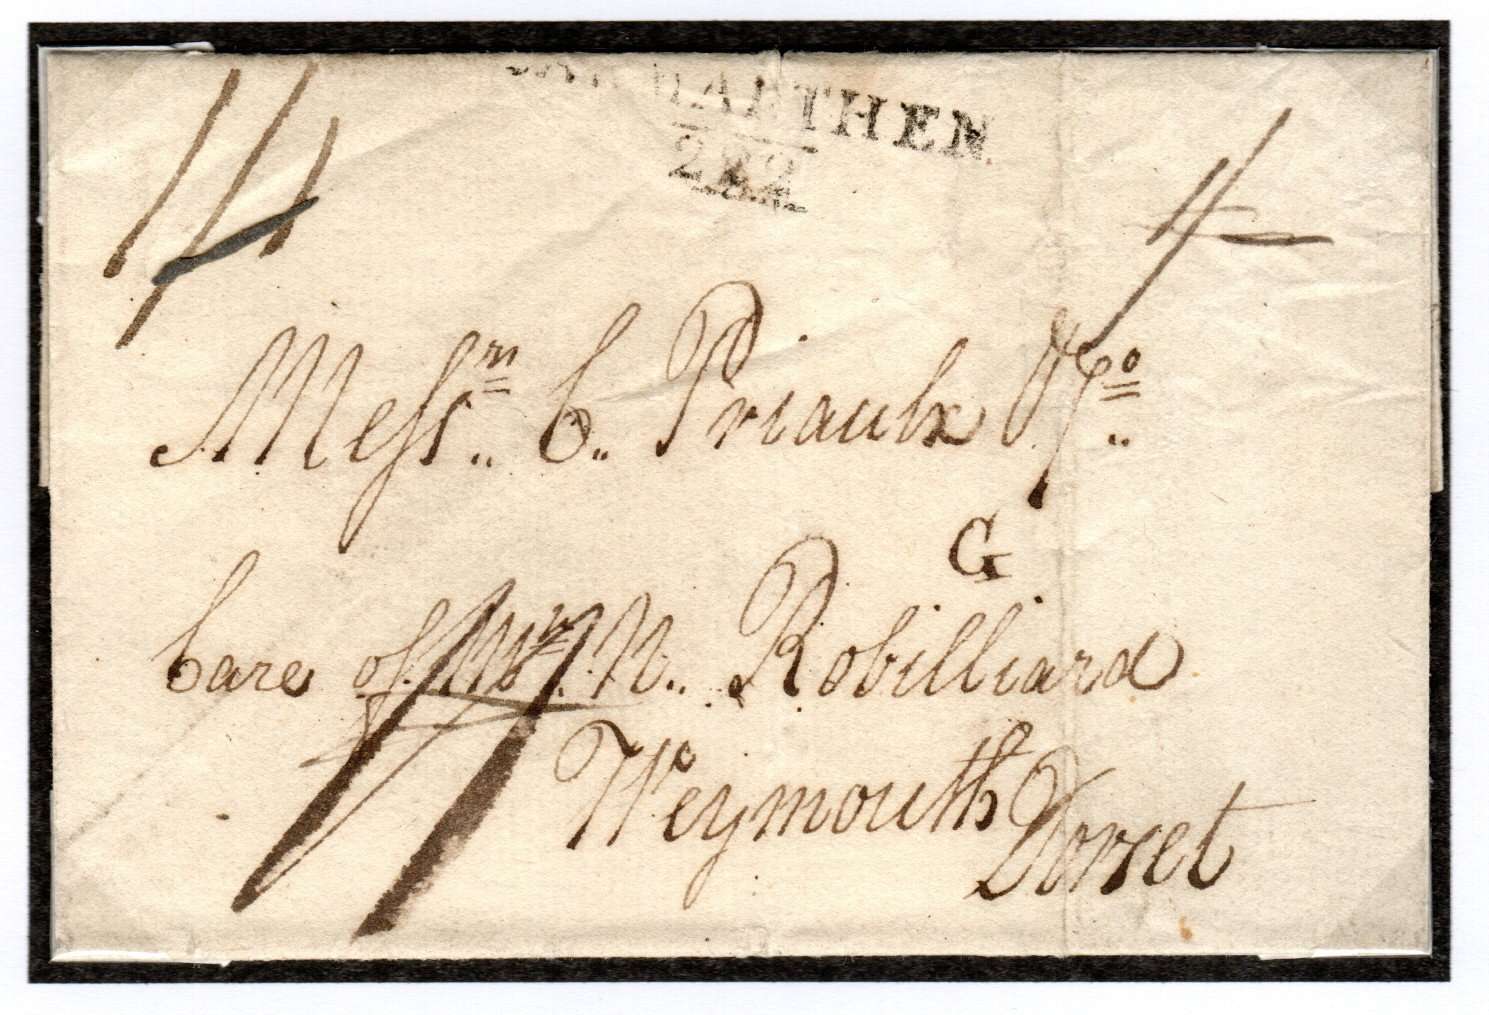 CARMARTHEN
222
Messrs. C. Priaulx & Co.
G
Care of Mr. N. Robilliard
Weymouth
Dorset